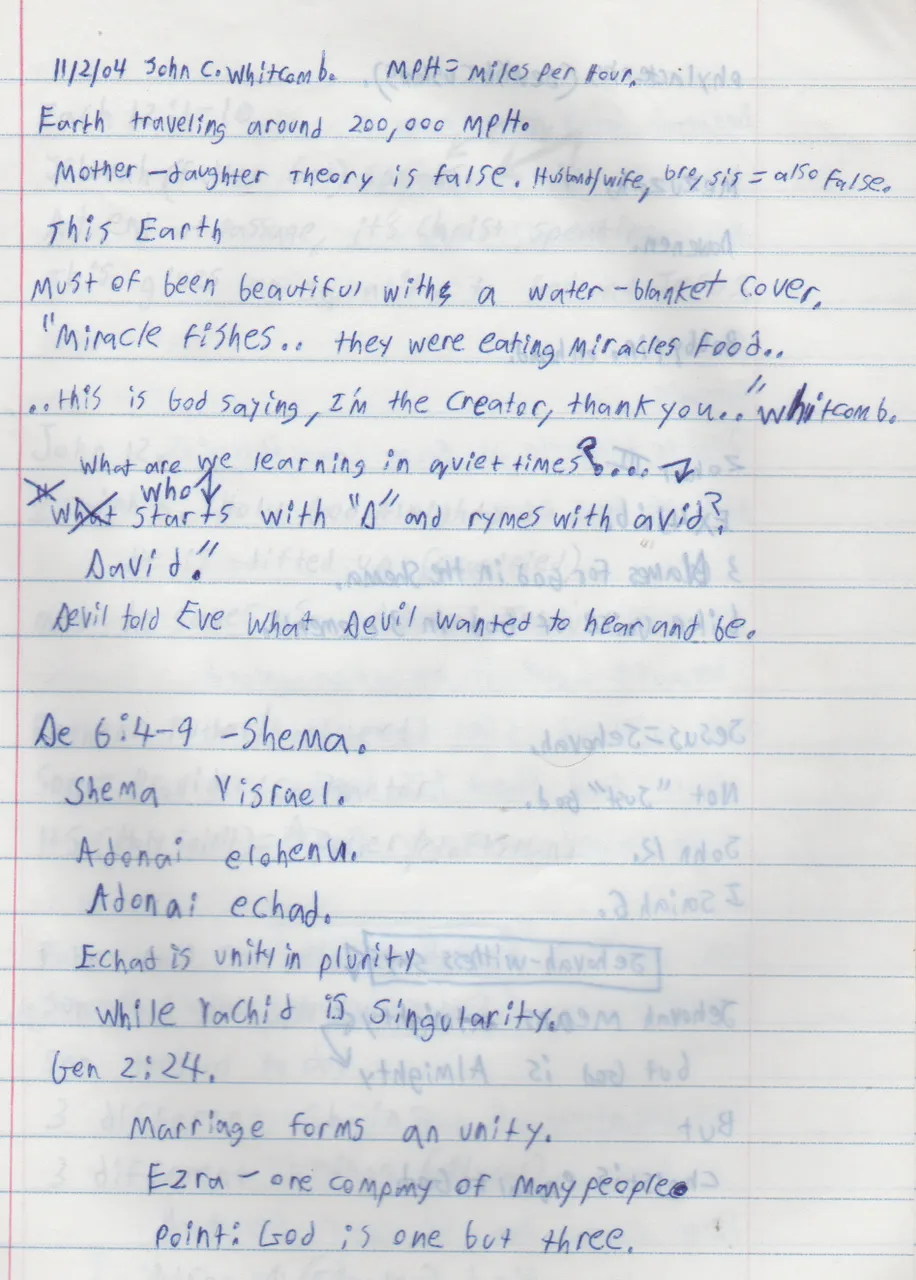 11/2/04 John C. Whitcomb. MPH= Miles Per Hour.
Earth traveling around 200,000 MPH.
Mother-daughter Theory is false. Husband/wife, bro/sis = also false.
This Earth
Must of been beautiful with a water-blanket cover.
"Miracle fishes.. they were eating Miracles Food..
..this is God saying, I'm the Creator, thank you.." Whitcomb.
What are we learning in quiet times?....
Who starts with "D" and rymes with avid?
David."
Devil told Eve what Devil wanted to hear and be.
De 6:4-9 -Shema.
Shema Yisrael.
Adonai elohenu.
Adonai echad.
Echad is unity in plurity
while Yachid is singutarity.
Gen 2:24.
Marriage forms an unity.
Ezra - one company of many people.
Point: God is one but three.